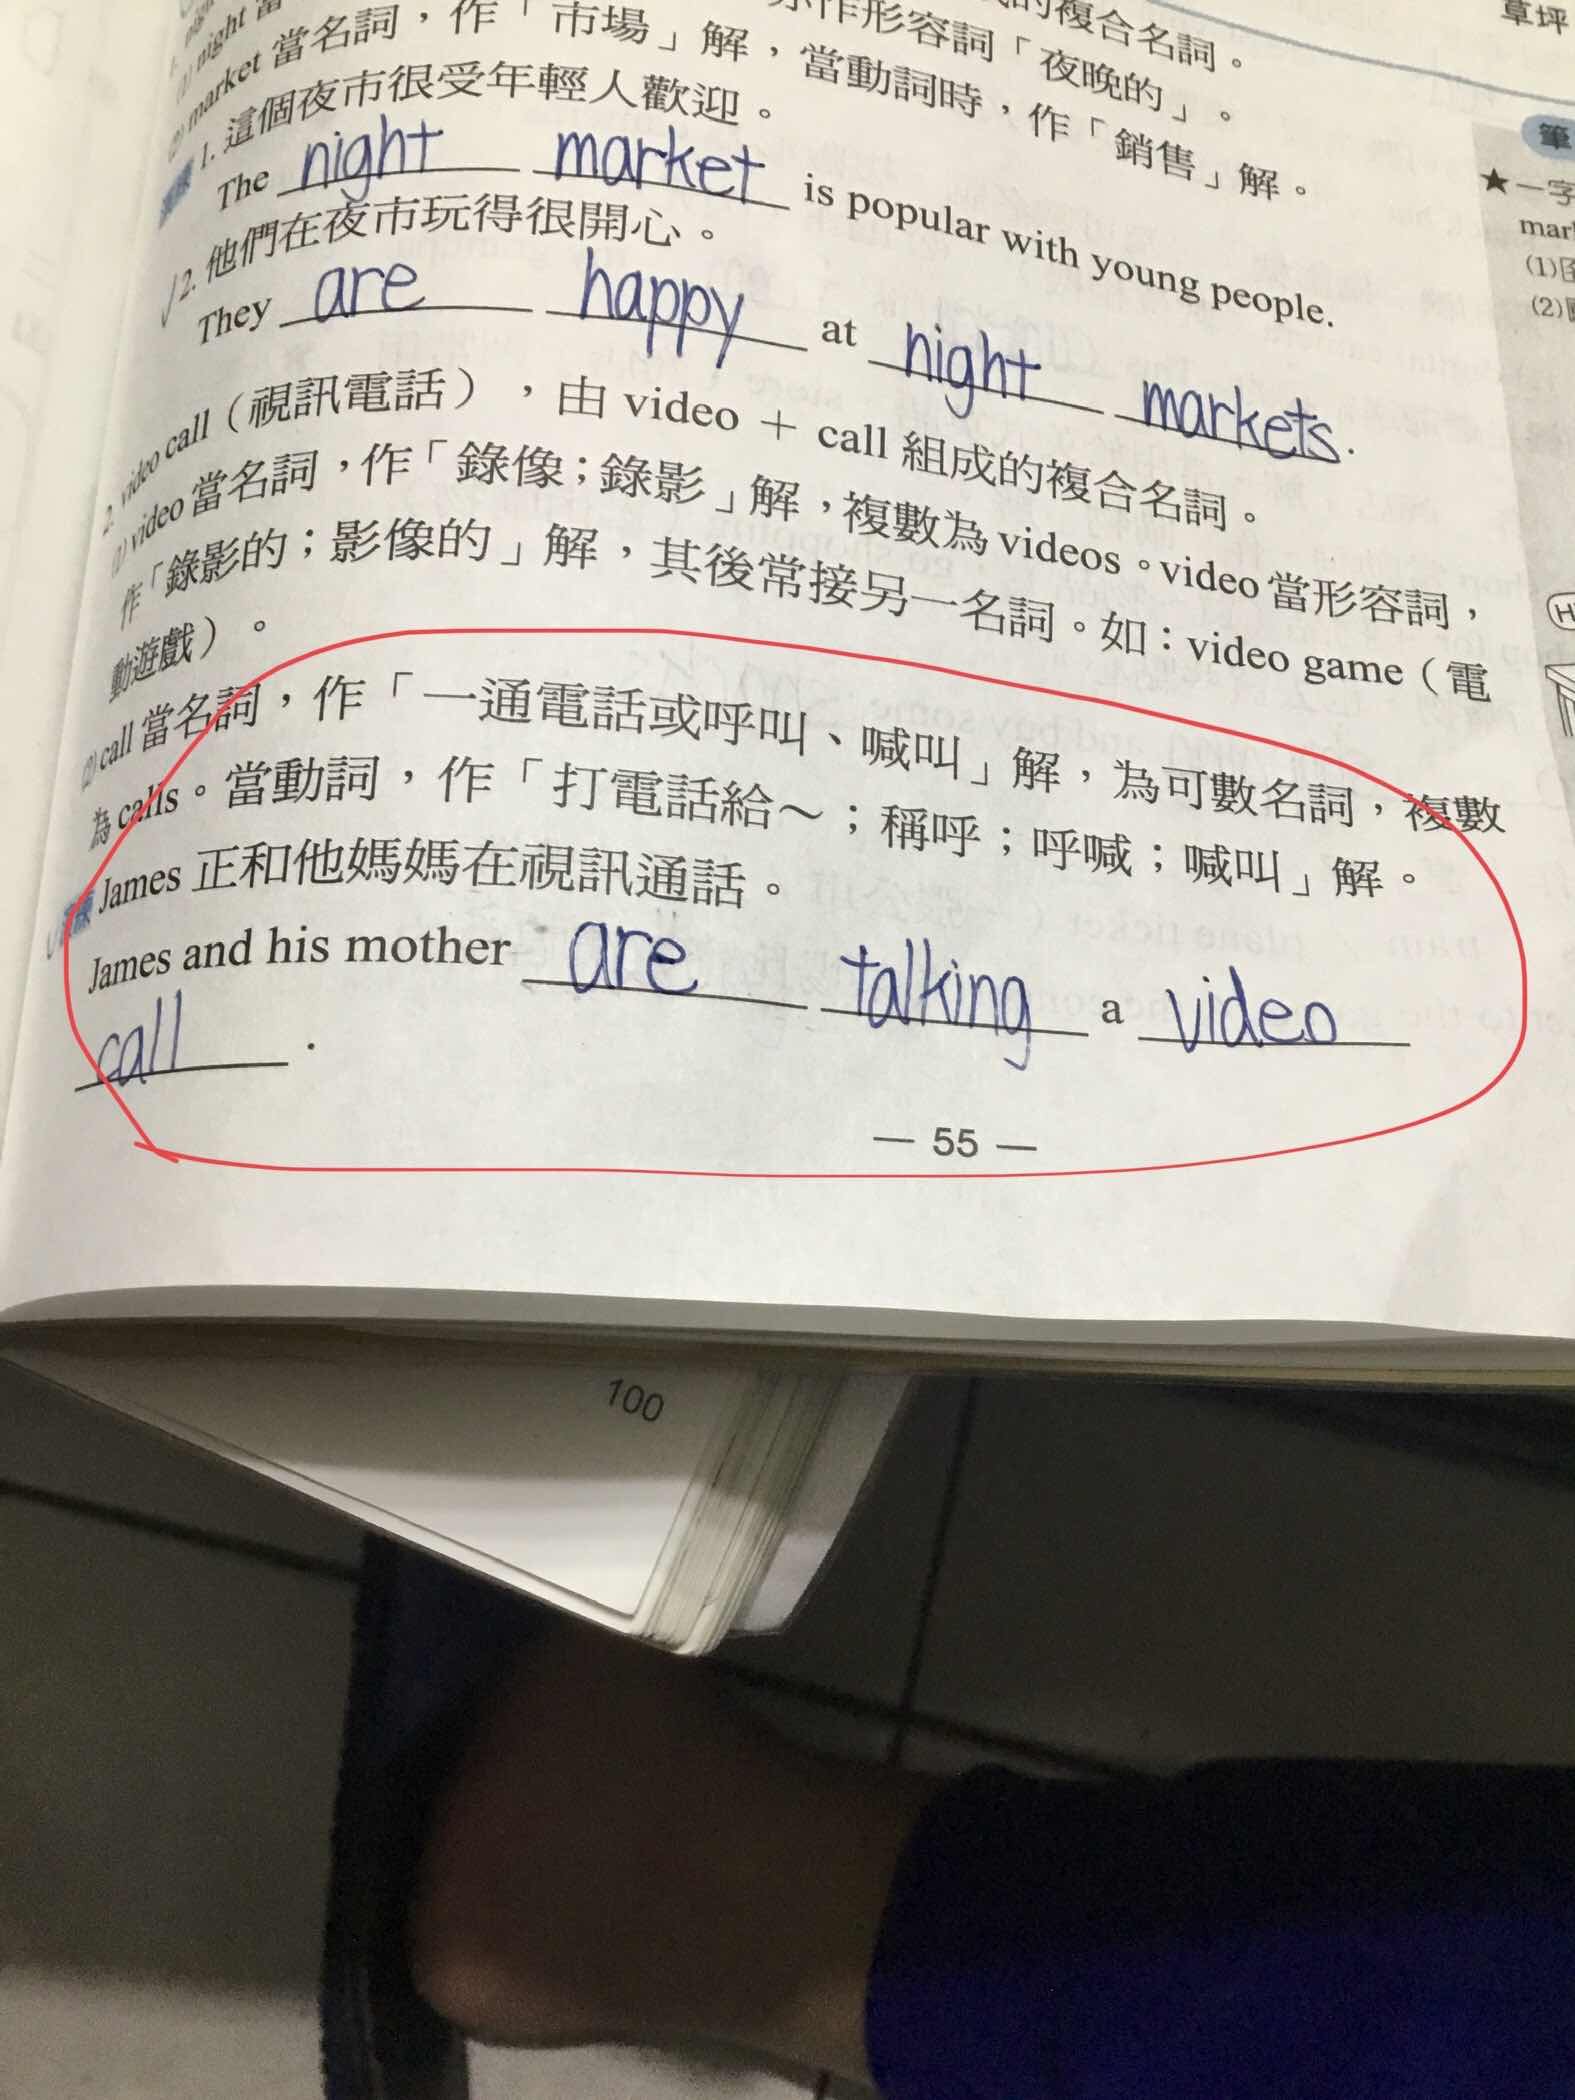 的複合名詞。
草坪
night 當
亦作形容詞「夜晚的」。
(2) market 當名詞，作「市場」解，當動詞時，作「銷售」解。
1. 這個夜市很受年輕人歡迎。
The night market is popular with young people.
2. 他們在夜市玩得很開心。
They are happy at night markets.
2. video call（視訊電話），由 video ＋ call 組成的複合名詞。
(1) video 當名詞，作「錄像；錄影」解，複數為 videos。video 當形容詞，
作「錄影的；影像的」解，其後常接另一名詞。如：video game（電
動遊戲）。
(2) call 當名詞，作「一通電話或呼叫、喊叫」解，為可數名詞，複數
為 calls。當動詞，作「打電話給～；稱呼；呼喊；喊叫」解。
James 正和他媽媽在視訊通話。
James and his mother are talking a video
call .
— 55 —
筆
★一字
(1)
(2)
100